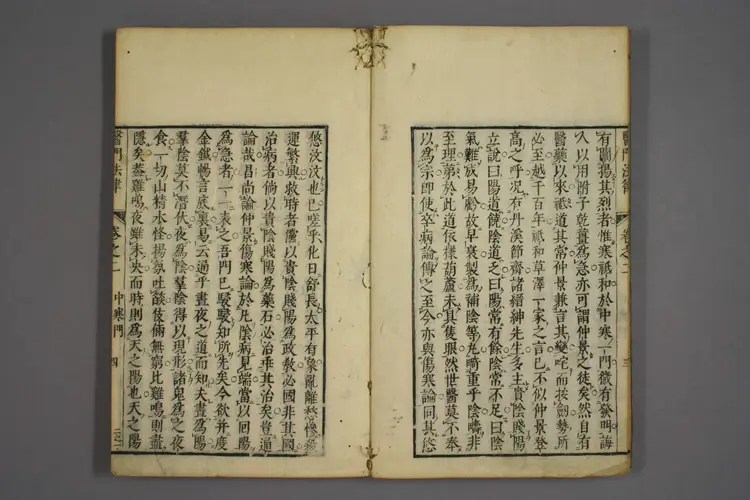 醫門法律　卷之二　三
有闡揚其烈者惟寒祗和於中寒一門微有發明誨
人以用附子乾薑爲急亦可謂仲景之徒矣然自有
醫藥以來祗道其常仲景兼言其變咤而按劒勢所
必至越千百年祗和草澤一家之言已不似仲景登
高之呼況有丹溪節齋諸縉紳先生多主貴陰賤陽
立說曰陽道饒陰道乏曰陽常有餘陰常不足曰陰
氣難成易虧故早衰製爲補陰等丸畸重乎陰疇非
至理第於此道依樣葫蘆未具隻眼然世醫莫不奉
以爲宗即使卒病論傳之至今亦與傷寒論同其悠
悠汶汶也已嗟乎化日舒長太平有象亂離愁慘
運繁興救時者儻以貴陰賤陽爲政敎必國非其國
治病者倘以貴陰賤陽爲藥石必治乖其治矣豈通
論哉昌尚論仲景傷寒論於凡陰病見端當以回陽
爲急者一一表之吾門已駸駸知所先矣今欲并度
金鍼暢言底裏易云通乎晝夜之道而知夫晝爲陽
羣陰莫不潛伏夜爲陰羣陰得以現形諸鬼爲之夜
食一切山精水怪揚氛吐燄伎倆無窮比雞鳴則盡
隱矣蓋雞鳴夜雖未央而時則爲天之陽也天之陽
醫門法律　卷之二　中寒門　四